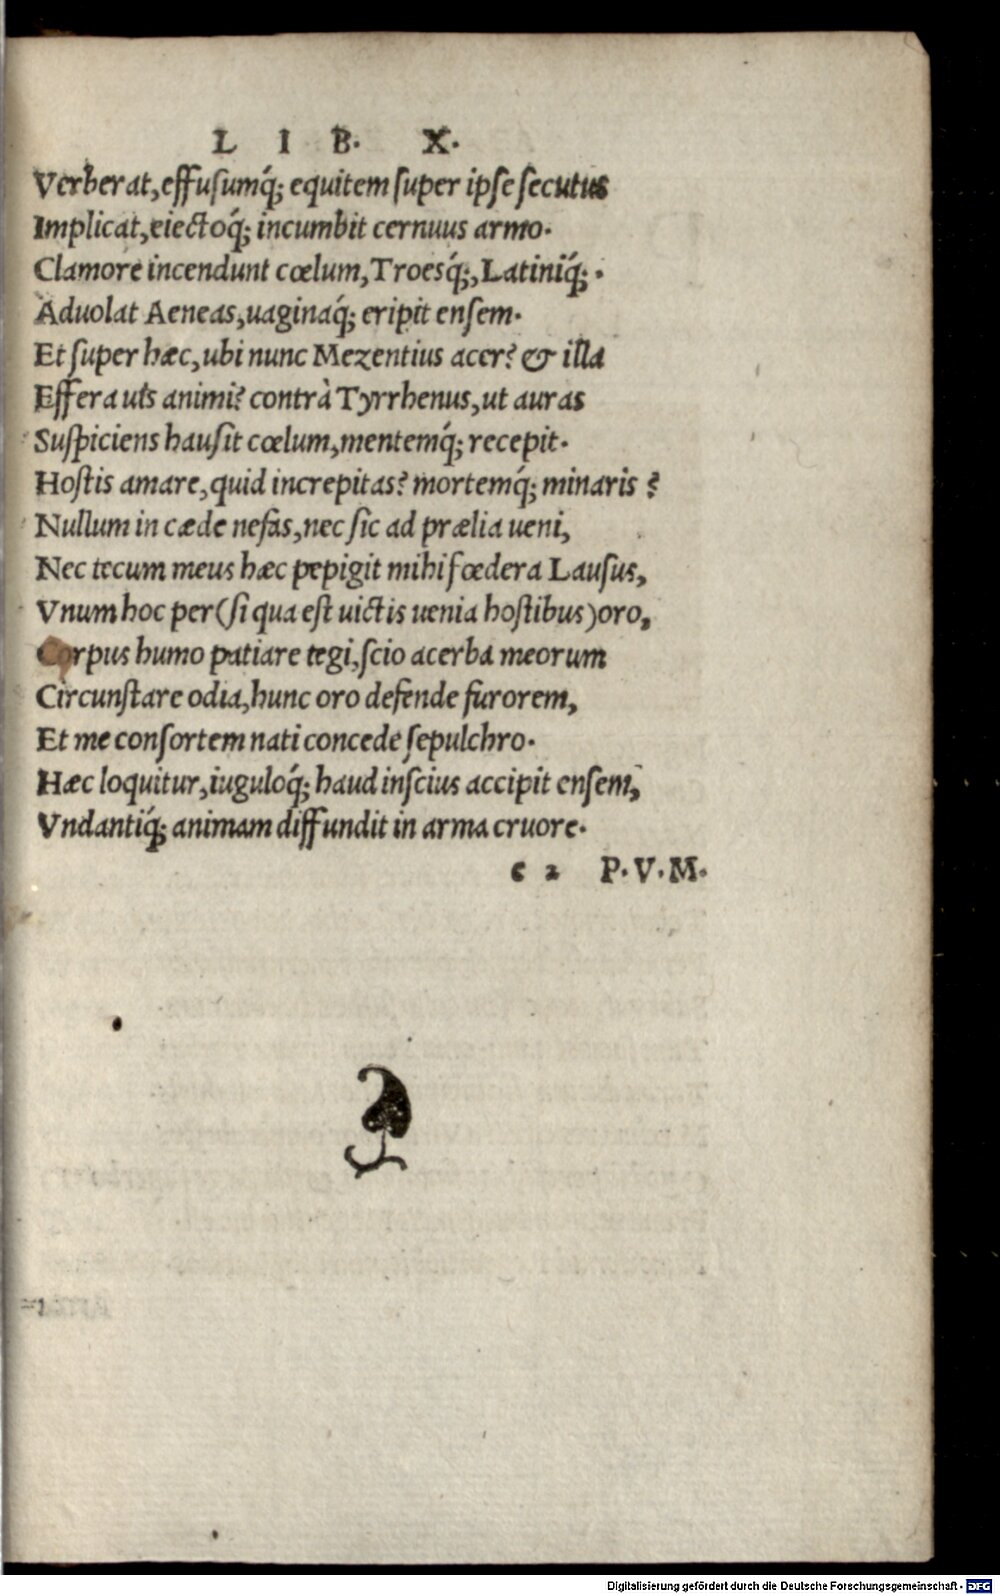 L I B. X.
Verberat, effusumq́; equitem super ipse secutus
Implicat, eiectoq́; incumbit cernuus armo.
Clamore incendunt cœlum, Troesq́;, Latiniq́;.
Aduolat Aeneas, uaginaq́; eripit ensem.
Et super hæc, ubi nunc Mezentius acer? & illa
Effera uis animi? contrà Tyrrhenus, ut auras
Suspiciens hausit cœlum, mentemq́; recepit.
Hostis amare, quid increpitas? mortemq́; minaris ?
Nullum in cæde nefas, nec sic ad prælia ueni,
Nec tecum meus hæc pepigit mihi fœdera Lausus,
Vnum hoc per (si qua est uictis uenia hostibus) oro,
Corpus humo patiare tegi, scio acerba meorum
Circunstare odia, hunc oro defende furorem,
Et me consortem nati concede sepulchro.
Hæc loquitur, iuguloq́; haud inscius accipit ensem,
Vndantiq́; animam diffundit in arma cruore.
c 2 P. V. M.
Digitalisierung gefördert durch die Deutsche Forschungsgemeinschaft - DFG